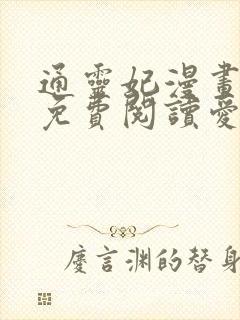 通靈妃漫畫
免費閱讀愛
慶言淵的替身